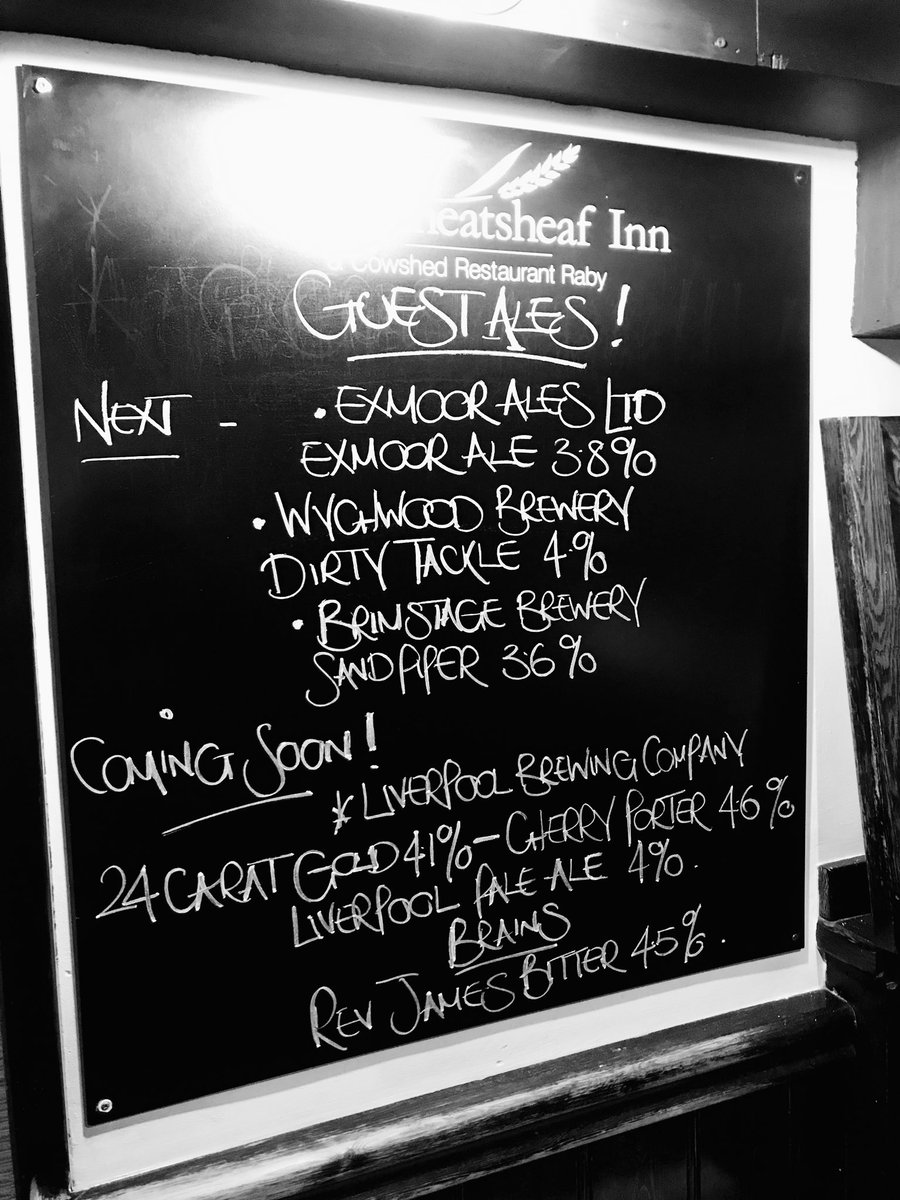 heatsheaf Inn
& Cowshed Restaurant Raby
GUEST ALES!
NEXT - • EXMOOR ALES LTD
EXMOOR ALE 3.8%
• WYCHWOOD BREWERY
DIRTY TACKLE 4.%
• BRIMSTAGE BREWERY
SANDPIPER 3.6%
COMING SOON!
* LIVERPOOL BREWING COMPANY
24 CARAT GOLD 4.1% - CHERRY PORTER 4.6%
LIVERPOOL PALE ALE 4%.
BRAINS
REV JAMES BITTER 4.5%.